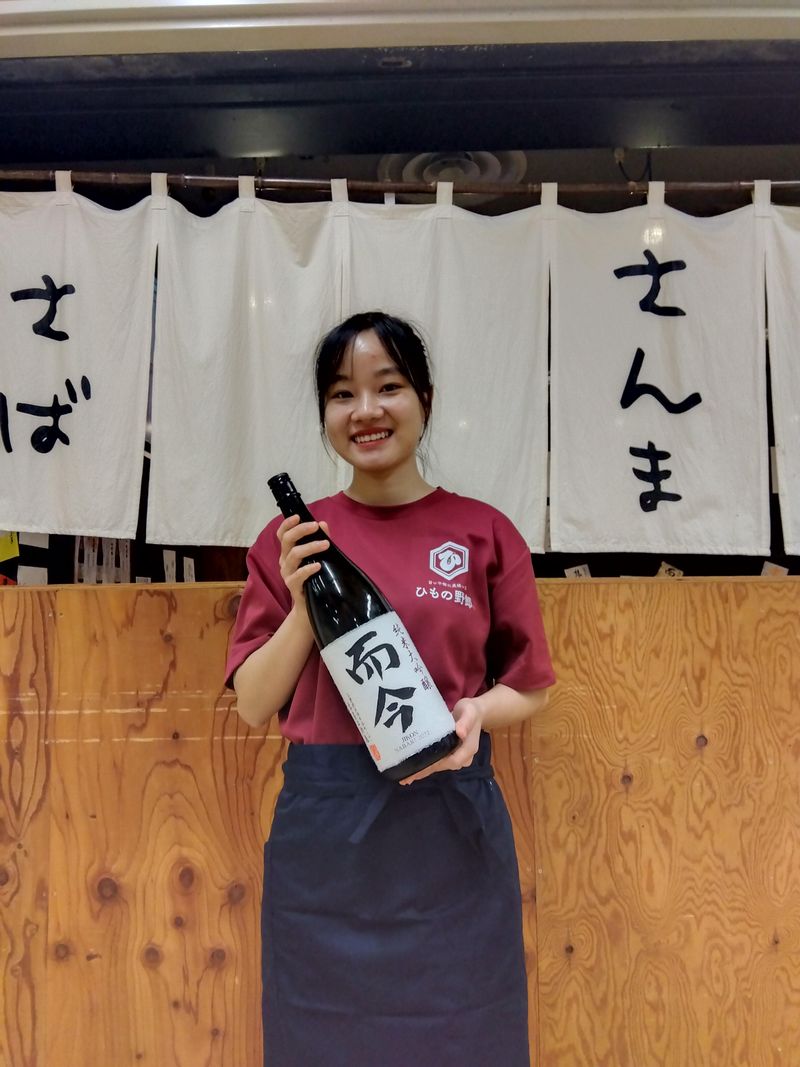 さば
さんま
ひ
ひもの野郎
純米大吟醸
而今
JIKON
NABARI 2022